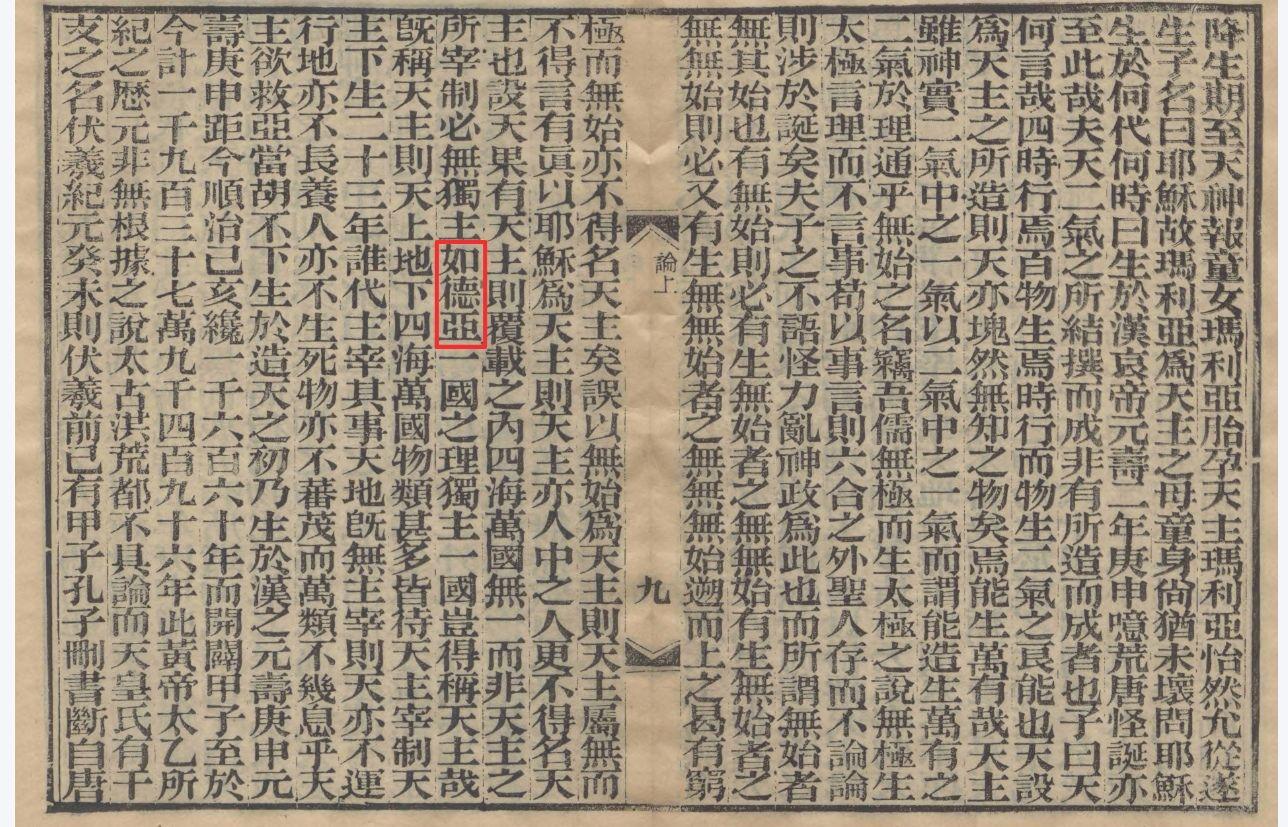 降生期至天神報童女瑪利亞胎孕天主瑪利亞怡然允從遂
生子名曰耶穌故瑪利亞爲天主之母童身尚猶未壞問耶穌
生於何代何時曰生於漢哀帝元壽二年庚申噫荒唐怪誕亦
至此哉夫天二氣之所結撰而成非有所造而成者也子曰天
何言哉四時行焉百物生焉時行而物生二氣之良能也天設
爲天主之所造則天亦塊然無知之物矣焉能生萬有哉天主
雖神實二氣中之一氣以二氣中之一氣而謂能造生萬有之
二氣於理通乎無始之名竊吾儒無極而生太極之說無極生
太極言理而不言事苟以事言則六合之外聖人存而不論論
則涉於誕矣夫子之不語怪力亂神政爲此也而所謂無始者
無其始也有無始則必有生無始者之無無始有生無始者之
無無始則必又有生無無始者之無無無始遡而上之曷有窮
論上
九
極而無始亦不得名天主矣誤以無始爲天主則天主屬無而
不得言有眞以耶穌爲天主則天主亦人中之人更不得名天
主也設天果有天主則覆載之內四海萬國無一而非天主之
所宰制必無獨主如德亞一國之理獨主一國豈得稱天主哉
旣稱天主則天上地下四海萬國物類甚多皆待天主宰制天
主下生三十三年誰代主宰其事天地旣無主宰則天亦不運
行地亦不長養人亦不生死物亦不蕃茂而萬類不幾息乎天
主欲救亞當胡不下生於造天之初乃生於漢之元壽庚申元
壽庚申距今順治己亥纔一千六百六十年而開闢甲子至於
今計一千九百三十七萬九千四百九十六年此黃帝太乙所
紀之歷元非無根據之說太古洪荒都不具論而天皇氏有干
支之名伏羲紀元癸未則伏羲前已有甲子孔子刪書斷自唐